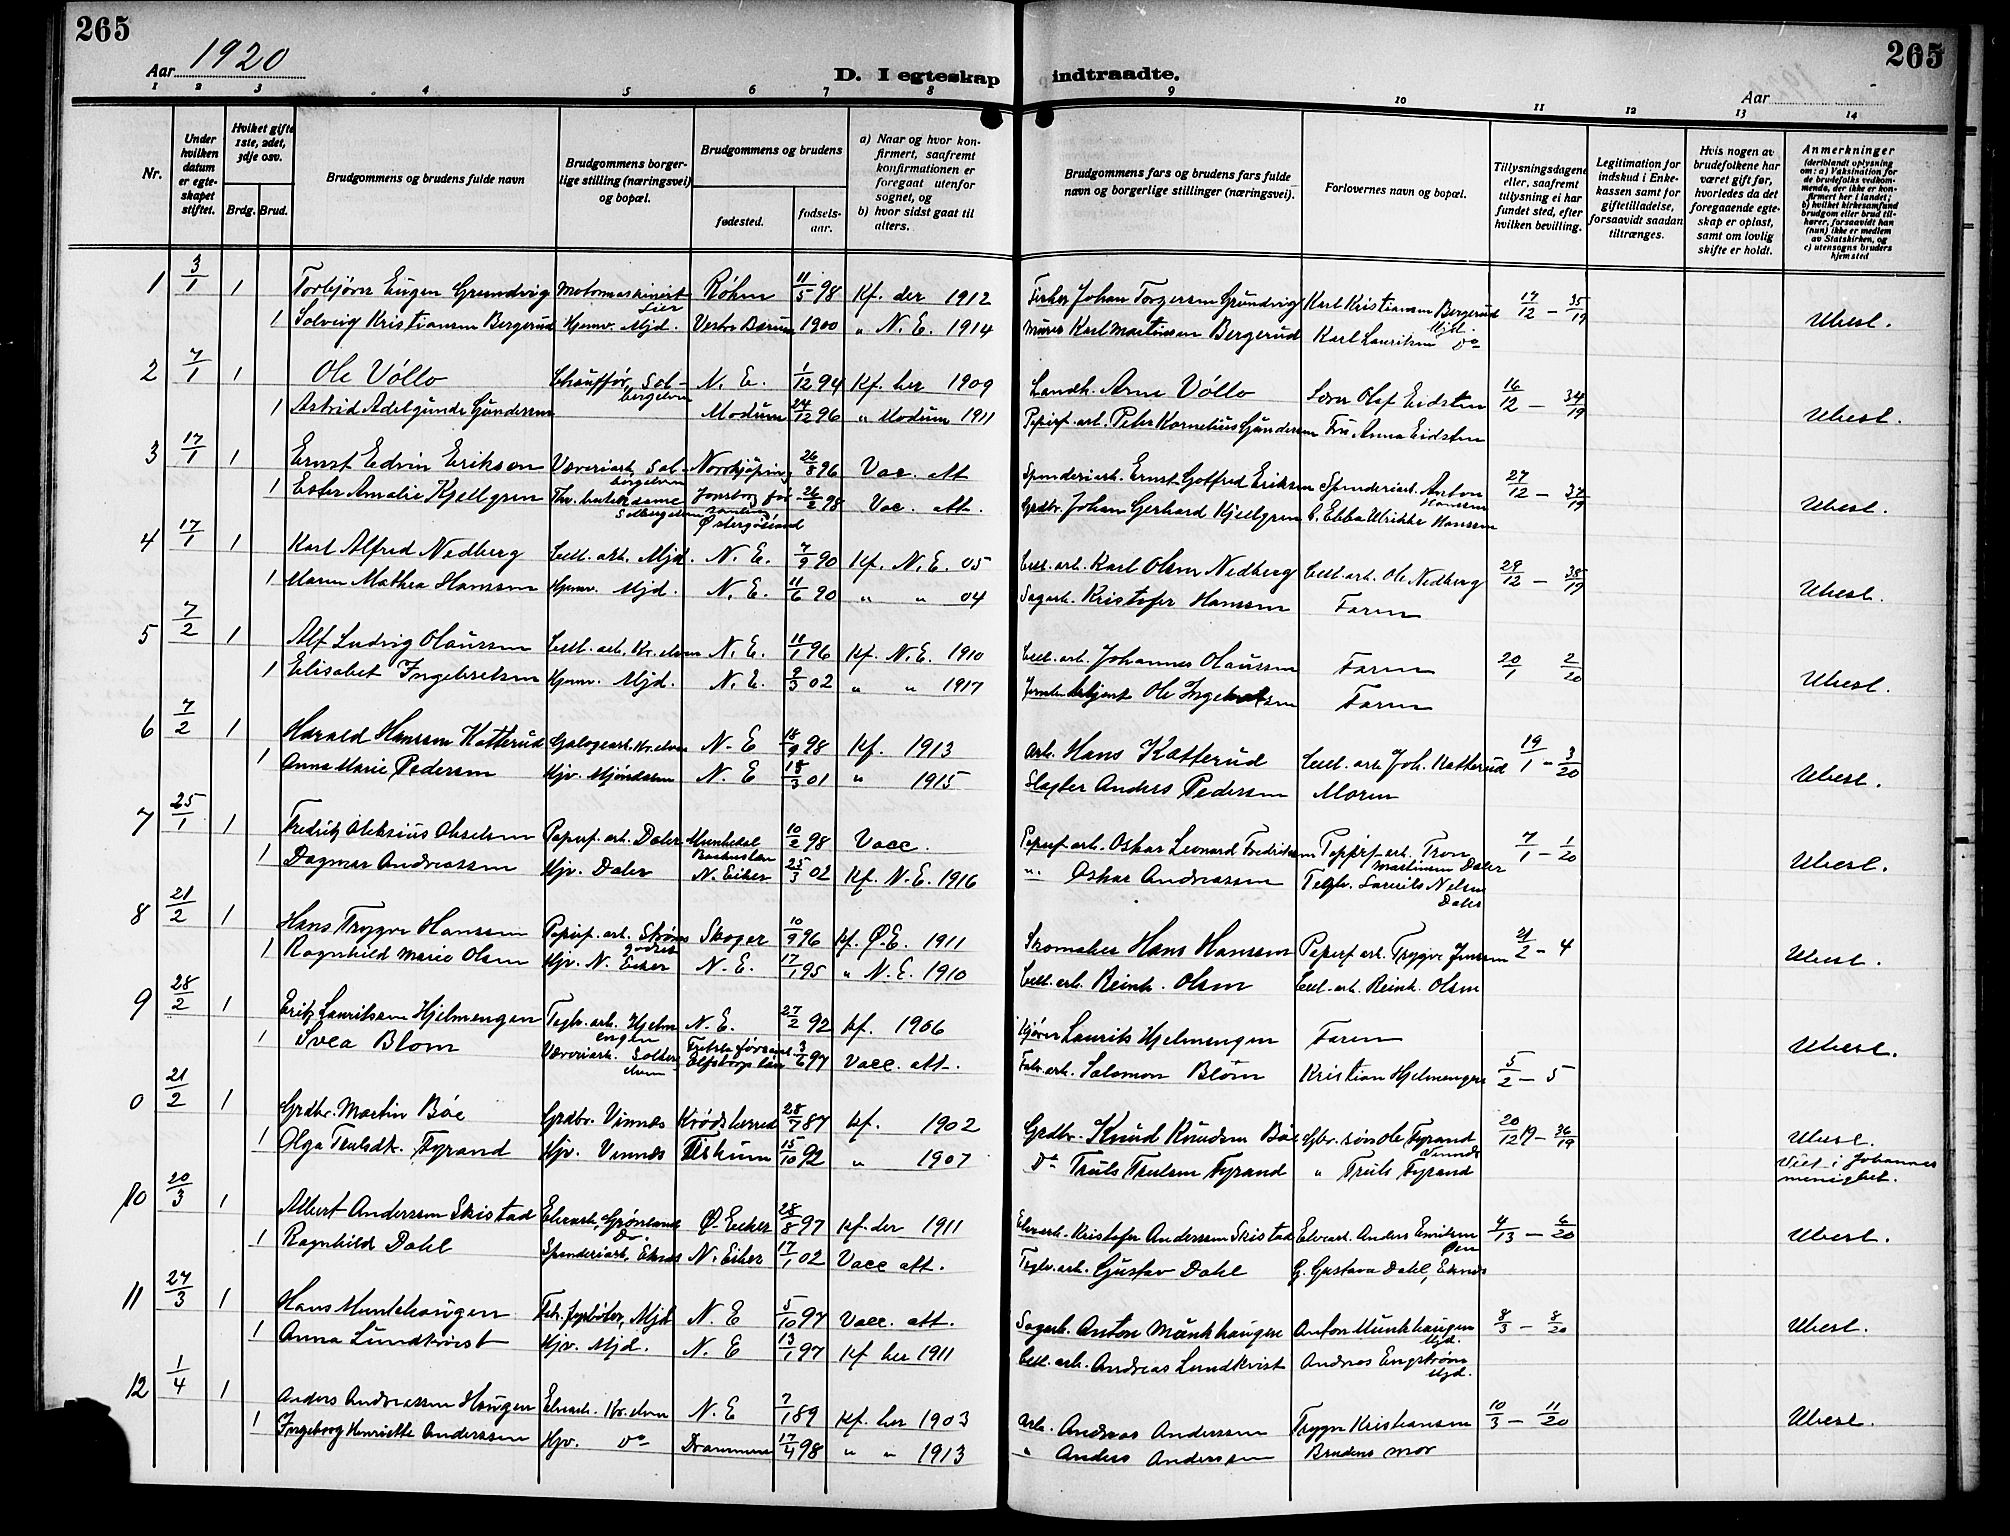 265
265
Aar 1920
D. I egteskap indtraadte.
Aar
1 2 3 4 5 6 7 8 9 10 11 12 13 14
Nr.
Under hvilken datum er egteskapet stiftet.
Hvilket gifte 1ste, 2det, 3dje osv.
Brdg. Brud.
Brudgommens og brudens fulde navn
Brudgommens borgerlige stilling (næringsvei) og bopæl.
Brudgommens og brudens
fødested.
fødselsaar.
a) Naar og hvor konfirmert, saafremt konfirmationen er foregaat utenfor sognet, og
b) hvor sidst gaat til alters.
Brudgommens fars og brudens fars fulde navn og borgerlige stillinger (næringsvei).
Forlovernes navn og bopæl.
Tillysningsdagene eller, saafremt tillysning ei har fundet sted, efter hvilken bevilling.
Legitimation for indskud i Enkekassen samt for giftetilladelse, forsaavidt saadan tiltrænges.
Hvis nogen av brudefolkene har været gift før, hvorledes da det foregaaende egteskap er opløst, samt om lovlig skifte er holdt.
Anmerkninger (deriblandt oplysning om: a) Vaksination for de brudefolks vedkommende, der ikke er konfirmert her i landet; b) hvilket kirkesamfund brudgom eller brud tilhører, forsaavidt han (hun) ikke er medlem av Statskirken, og c) utensogns bruders hjemsted
1 3/1 1 Torbjørn Eugen Grundvig Motormaskinist Lier Røken 11/5 98 Kf. der 1912 Fisker Johan Torgersen Grundvig Karl Kristiansen Bergerud 17/12 – 35/19
1 Solveig Kristiansen Bergerud Hjemv. Mjd. Vestre Bærum 1900 " N. E. 1914 Murer Karl Martinsen Bergerud Mjd. Karl Lauritsen do Ubesl.
2 7/1 1 Ole Vøllo Chauffør, Solbergelven N. E. 1/12 94 Kf. her 1909 Landh. Arne Vøllo Lærer Olaf Eidsten 16/12 – 34/19
1 Astrid Adelgunde Gundersen Modum 24/12 96 " Modum 1911 Papirf. arb. Peter Kornelius Gundersen Fru Anna Eidsten Ubesl.
3 17/1 1 Ernst Edvin Eriksen Væveriarb. Solbergelven Norrkjöping 26/8 96 Vac. att Spinderiarb. Ernst Gotfred Eriksen Spinderiarb. Anton Hanssen 27/12 – 37/19
1 Ester Amalie Kjellgren Solbergelven Östergötland 26/2 98 Vac. att. Grdbr. Johan Gerhard Kjellgren Ebba Ulrikke Hanssen Ubesl.
4 17/1 1 Karl Alfred Nedberg Cell. arb. Mjd. N. E. 7/9 90 Kf. N. E. 05 Cell. arb. Karl Olsen Nedberg Cell. arb. Ole Nedberg 29/12 – 38/19
1 Maren Mathea Hanssen Hjemv. Mjd. N. E. 11/6 90 " " 04 Sagarb. Kristofer Hanssen Faren Ubesl.
5 7/2 1 Alf Ludvig Olaussen Cell. arb. Kr. elven N. E. 11/1 96 Kf. N. E. 1910 Cell. arb. Johannes Olaussen Faren 20/1 2/20
1 Elisabet Ingebretsen Hjemv. Mjd. N. E. 9/3 02 " " 1917 Ole Ingebretsen Faren Ubesl.
6 7/2 1 Harald Hanssen Katterud Galogearb. Kr. elven N. E 18/9 98 Kf. 1913 Arb. Hans Katterud Cell. arb. Joh. Katterud 19/1 – 3/20
1 Anna Marie Pedersen Hjv. Mjøndalen N. E 18/3 01 " 1915 Slagter Anders Pedersen Moren Ubesl.
7 25/1 1 Fredrik Aleksius Akselsen Papirf. arb. Daler Munkedal Bohuslen 10/2 98 Vacc. Papirf. arb. Oskar Leonard Fredriksen Papirf. arb. Tron Martinsen Daler 7/1 – 1/20
1 Dagmar Andreassen Hjv. Daler N. Eiker 25/3 02 Kf. N. E. 1916 " Oskar Andreassen Teglv. Laurits Nelsen Daler Ubesl.
8 21/2 1 Hans Trygve Hanssen Papirf. arb. Strøms godset Skoger 10/9 96 Kf. Ø. E. 1911 Skomaker Hans Hanssen Papirf. arb. Trygve Jensen 21/2 – 4
1 Ragnhild Marie Olsen Hjv. N. Eiker N. E. 17/1 95 " N. E. 1910 Cell. arb. Reinh. Olsen Cell. arb. Reinh. Olsen Ubesl.
9 28/2 1 Erik Lauritsen Hjelmengen Teglv. arb. Hjelmengen N. E. 27/2 92 Kf. 1906 Kjører Laurits Hjelmengen Faren
1 Svea Blom Væveriarb. Solbergelven Elfsborgs län 3/6 97 Vacc. att. Fabr. arb. Salomon Blom Kristian Hjelmengen 5/2 – 5 Ubesl.
0 21/2 1 Grdbr. Martin Bøe Grdbr. Vinnæs Krødsherred 28/7 87 Kf. 1902 Grdbr. Knud Knudsen Bøe Gbr. søn Ole Fyrand Vinnæs 20/12 19 – 36/19 Ubesl.
1 Olga Trulsdt. Fyrand Hjv. Vinnæs Fiskum 15/10 92 " 1907 Do Truls Trulsen Fyrand " Truls Fyrand Viet i Johannes menighet.
10 20/3 1 Albert Anderssen Skistad Elvearb. Grønland Dr. Ø. Eeker 28/8 97 Kf. der 1911 Elvearb. Kristofer Anderssen Skistad Elvearb. Anders Emilsen 4/13 – 6/20
1 Ragnhild Dahl Spinderiarb. Eknes N. Eiker 17/1 02 Vacc att. Teglv. arb. Gustav Dahl G. Gustava Dahl, Eknes Ubesl.
11 27/3 1 Hans Munkhaugen Fabr. fyrbøter, Mjd N. E 5/10 97 Vacc. att. Sagarb. Anton Munkhaugen Anton Munkhaugen Mjd. 8/3 – 8/20
1 Anna Lundkvist Hjv. Mjd. N. E 13/1 97 Kf her 1911 Cell. arb. Andreas Lundkvist Andreas Engstrøm Mjd. Ubesl.
12 1/4 1 Anders Andreassen Haugen Elvearb. Kr. elven N. E 7/1 89 Kf. her 1903 Arb. Andreas Anderssen Trygve Kristiansen 10/3 – 11/20
1 Ingeborg Henriette Anderssen Hjv. do Drammen 17/4 98 " " 1913 " Anders Anderssen Brudens mor Ubesl.